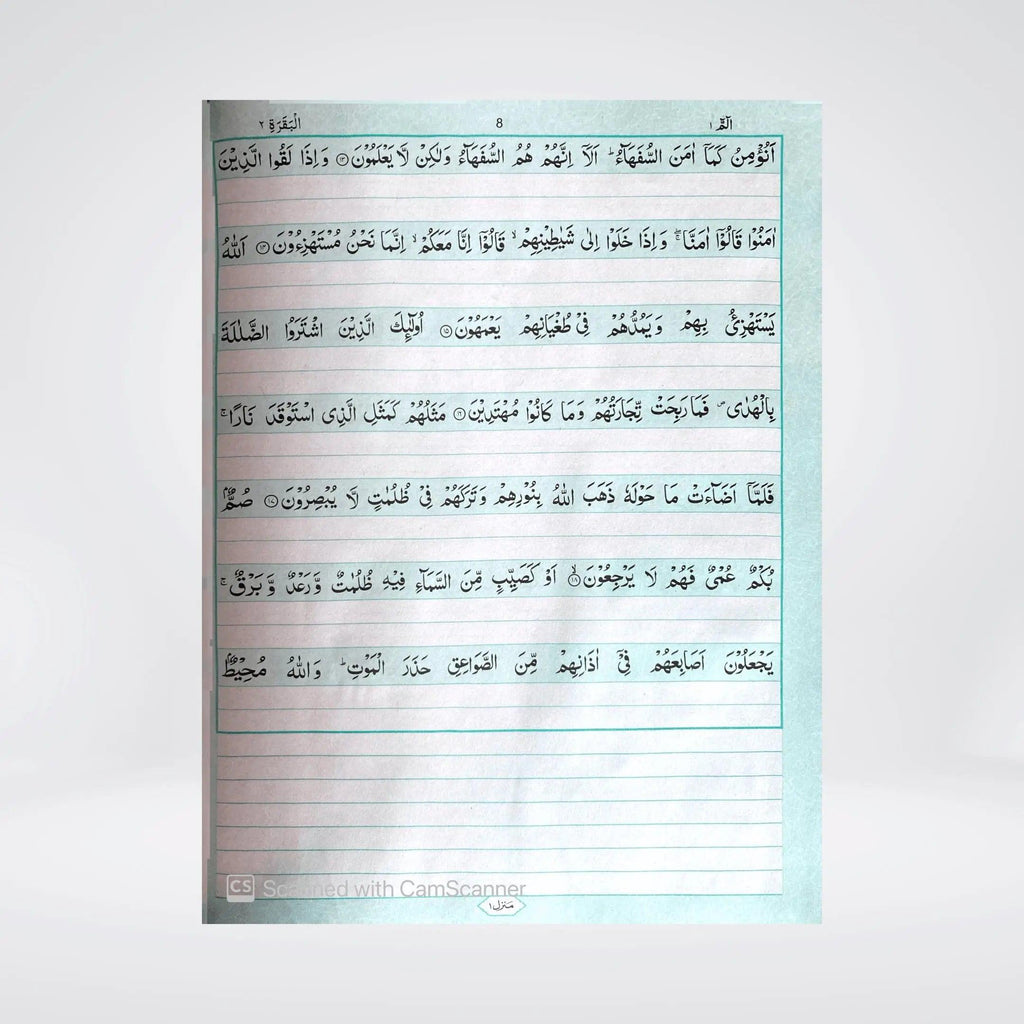 الٓمّٓ ١ 8 الْبَقَرَةِ ٢
اَنُؤْمِنُ كَمَاۤ اٰمَنَ السُّفَهَآءُ ؕ اَلَاۤ اِنَّهُمْ هُمُ السُّفَهَآءُ وَلٰكِنْ لَّا يَعْلَمُوْنَ ۝١٣ وَاِذَا لَقُوا الَّذِيْنَ
اٰمَنُوْا قَالُوْۤا اٰمَنَّا ۖۚ وَاِذَا خَلَوْا اِلٰى شَيٰطِيْنِهِمْ ۙ قَالُوْۤا اِنَّا مَعَكُمْ ۙ اِنَّمَا نَحْنُ مُسْتَهْزِءُوْنَ ۝١٤ اَللّٰهُ
يَسْتَهْزِئُ بِهِمْ وَيَمُدُّهُمْ فِىْ طُغْيَانِهِمْ يَعْمَهُوْنَ ۝١٥ اُولٰٓئِكَ الَّذِيْنَ اشْتَرَوُا الضَّلٰلَةَ
بِالْهُدٰى ۪ فَمَا رَبِحَتْ تِّجَارَتُهُمْ وَمَا كَانُوْا مُهْتَدِيْنَ ۝١٦ مَثَلُهُمْ كَمَثَلِ الَّذِى اسْتَوْقَدَ نَارًا ۚ
فَلَمَّاۤ اَضَآءَتْ مَا حَوْلَهٗ ذَهَبَ اللّٰهُ بِنُوْرِهِمْ وَتَرَكَهُمْ فِىْ ظُلُمٰتٍ لَّا يُبْصِرُوْنَ ۝١٧ صُمٌّۢ
بُكْمٌ عُمْىٌ فَهُمْ لَا يَرْجِعُوْنَ ۙ۝١٨ اَوْ كَصَيِّبٍ مِّنَ السَّمَآءِ فِيْهِ ظُلُمٰتٌ وَّرَعْدٌ وَّبَرْقٌ ۚ
يَجْعَلُوْنَ اَصَابِعَهُمْ فِىْۤ اٰذَانِهِمْ مِّنَ الصَّوَاعِقِ حَذَرَ الْمَوْتِ ؕ وَاللّٰهُ مُحِيْطٌۢ
CS Scanned with CamScanner
منزل ١